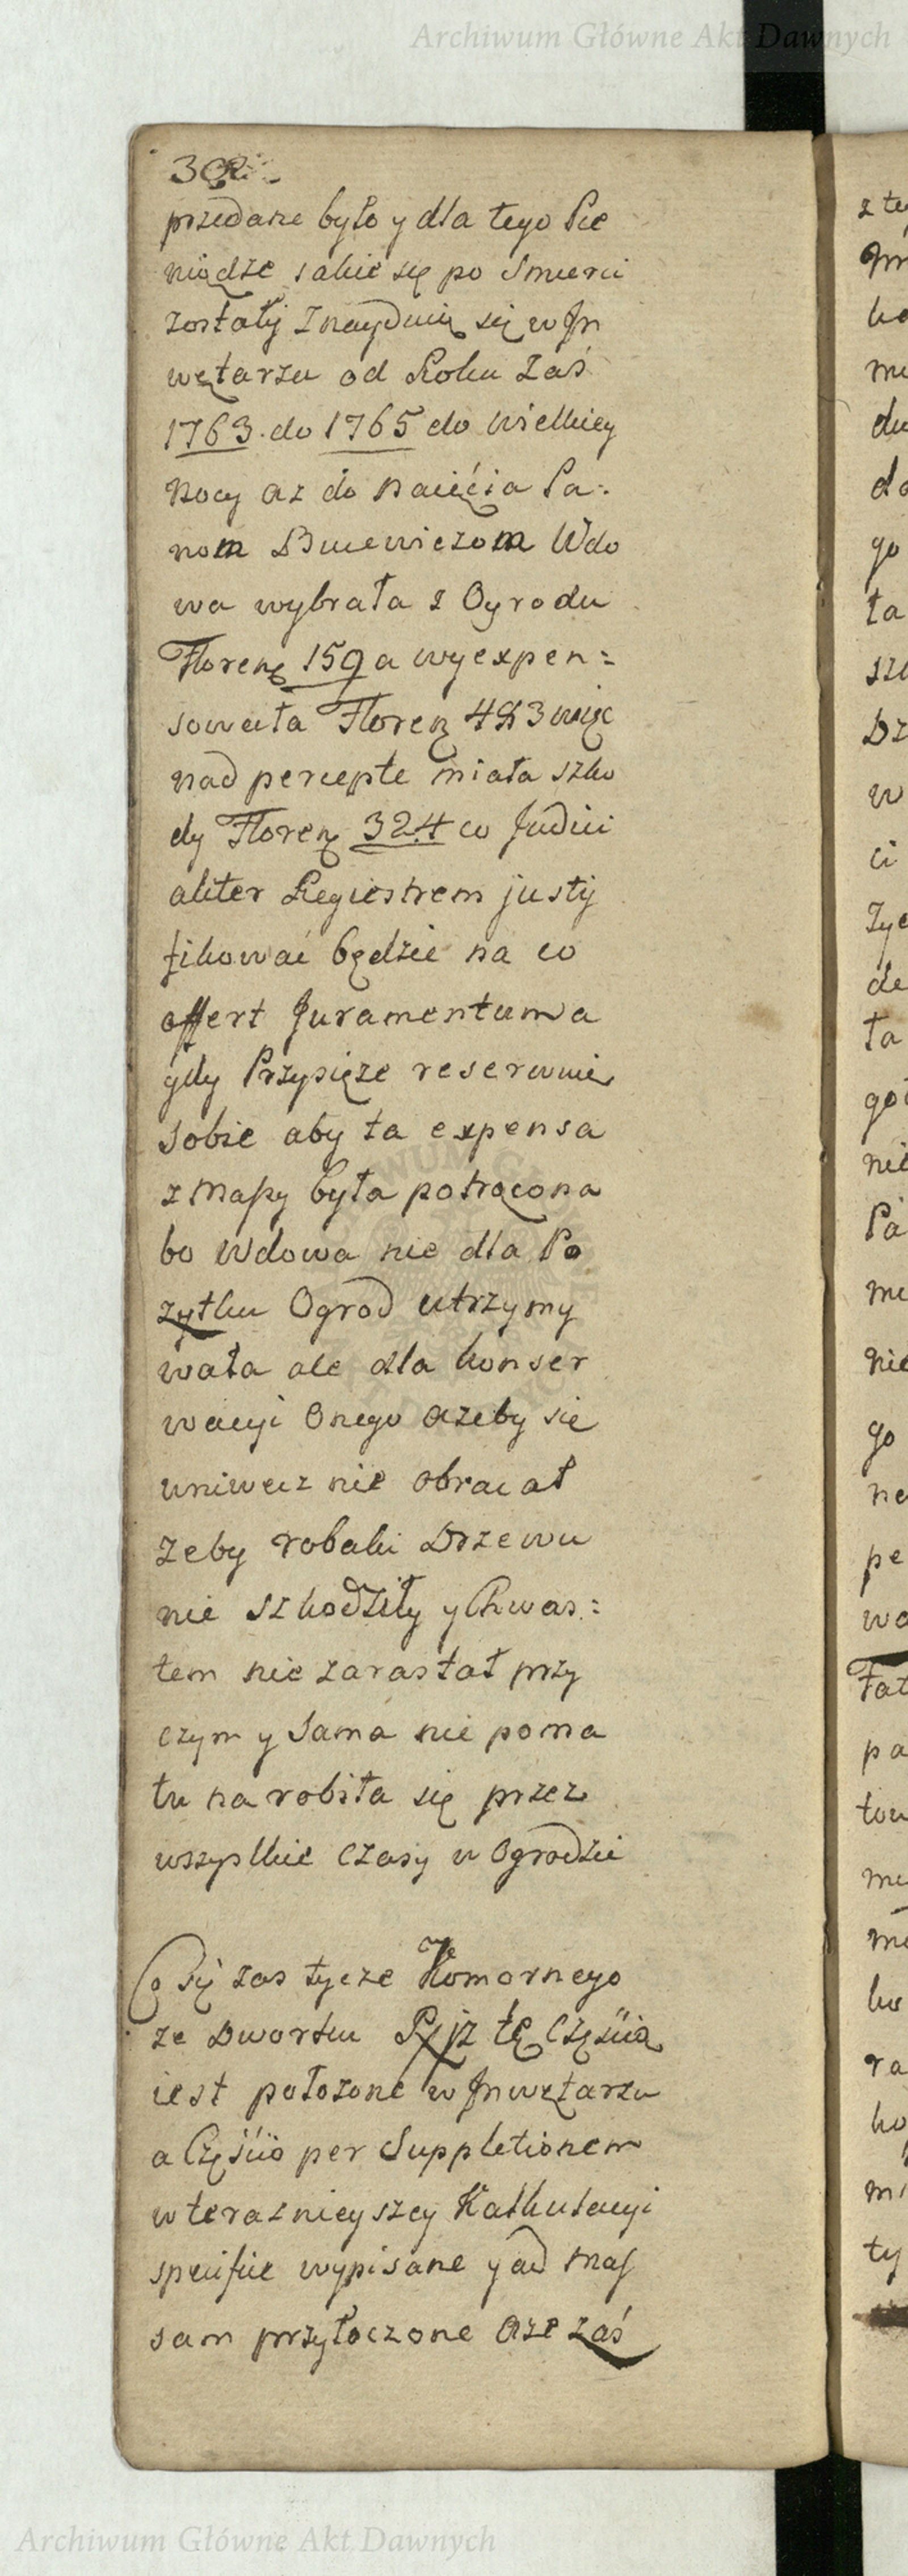 Archiwum Główne Akt Dawnych
302
przedane było y dla tego Pie
niądze iakie się po Smierci
zostały Znayduią się w In
wętarzu od Roku Zaś
1763. do 1765 do Wielkiey
Nocy az do Naięcia Pa:
nom Wdo
wa wybrała z Ogrodu
Floreny 159 a wyexpen=
sowała Floreny 483 więc
nad percepte miała szko
dy Floreny 324 co Judici
aliter Regiestrem justy
fikować będzie na co
offert Juramentum a
gdy Przysięże reserwuie
Sobie aby ta expensa
z Massy była potrącona
bo Wdowa nie dla Po
zytku Ogrod utrzymy
wała ale dla konser
wacyi Onego azeby się
wniwecz nie obracał
zeby robaki Drzewu
nie szkodziły y Chwas:
tem nie zarastał przy
czym y Sama nie poma
łu narobiła się przez
wszystkie Czasy w Ogrodzie
Co się zas tycze Komornego
ze Dworku tę Częścią
iest położone w Inwętarzu
a Częścią per Suppletionem
w teraznieyszey Kalkulacyi
specifice wypisane y ad Mas
sam przyłoczone aze zaś
z te
ho
mu
du
do
go
ta
szu
Dz
w
ci
zyc
de
ta
go
nie
Pa
mu
nie
go
ne
pe
wa
Fat
pa
tow
mu
mo
ko
ra
ko
mi
ty
Archiwum Główne Akt Dawnych